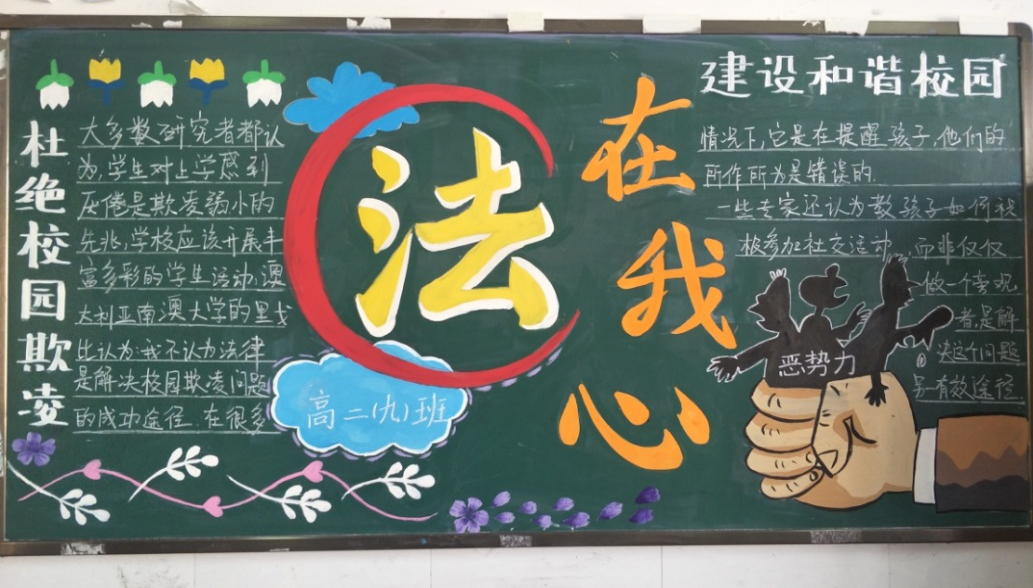 杜绝校园欺凌
大多数研究者都认
为,学生对上学感到
厌倦是欺凌弱小的
先兆,学校应该开展丰
富多彩的学生活动,澳
大利亚南澳大学的里戈
比认为:我不认为法律
是解决校园欺凌问题
的成功途径.在很多
高二(九)班
法
在我心
建设和谐校园
情况下,它是在提醒孩子,他们的
所作所为是错误的.
一些专家还认为教孩子如何积
极参加社交运动,而非仅仅
做一个旁观
者,是解
决这个问题
另一有效途径.
恶势力